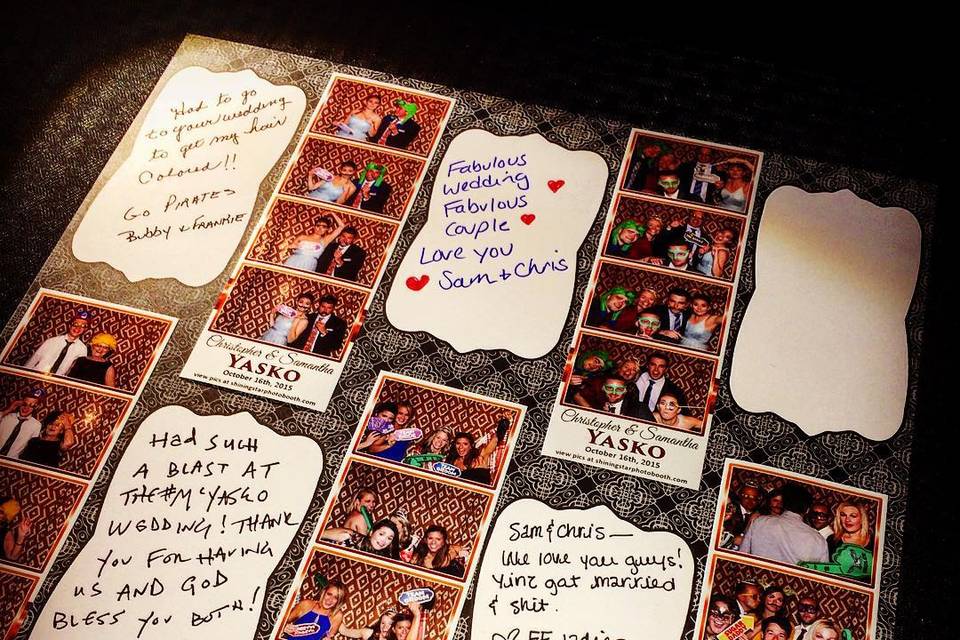 Had to go
to your wedding
to get my hair
Colored!!
Go PIRATES
Bubby & FRANKIE
Christopher & Samantha
YASKO
October 16th, 2015
view pics at shiningstarphotobooth.com
Fabulous
Wedding
Fabulous
Couple
Love you
Sam + Chris
Christopher & Samantha
YASKO
October 16th, 2015
view pics at shiningstarphotobooth.com
HAD SUCH
A BLAST AT
THE #McYASKO
WEDDING! THANK
YOU FOR HAVING
US AND GOD
BLESS YOU BOTH!
TEAM
BRIDE
Sam & Chris—
We love you guys!
Yinz got married
& shit.